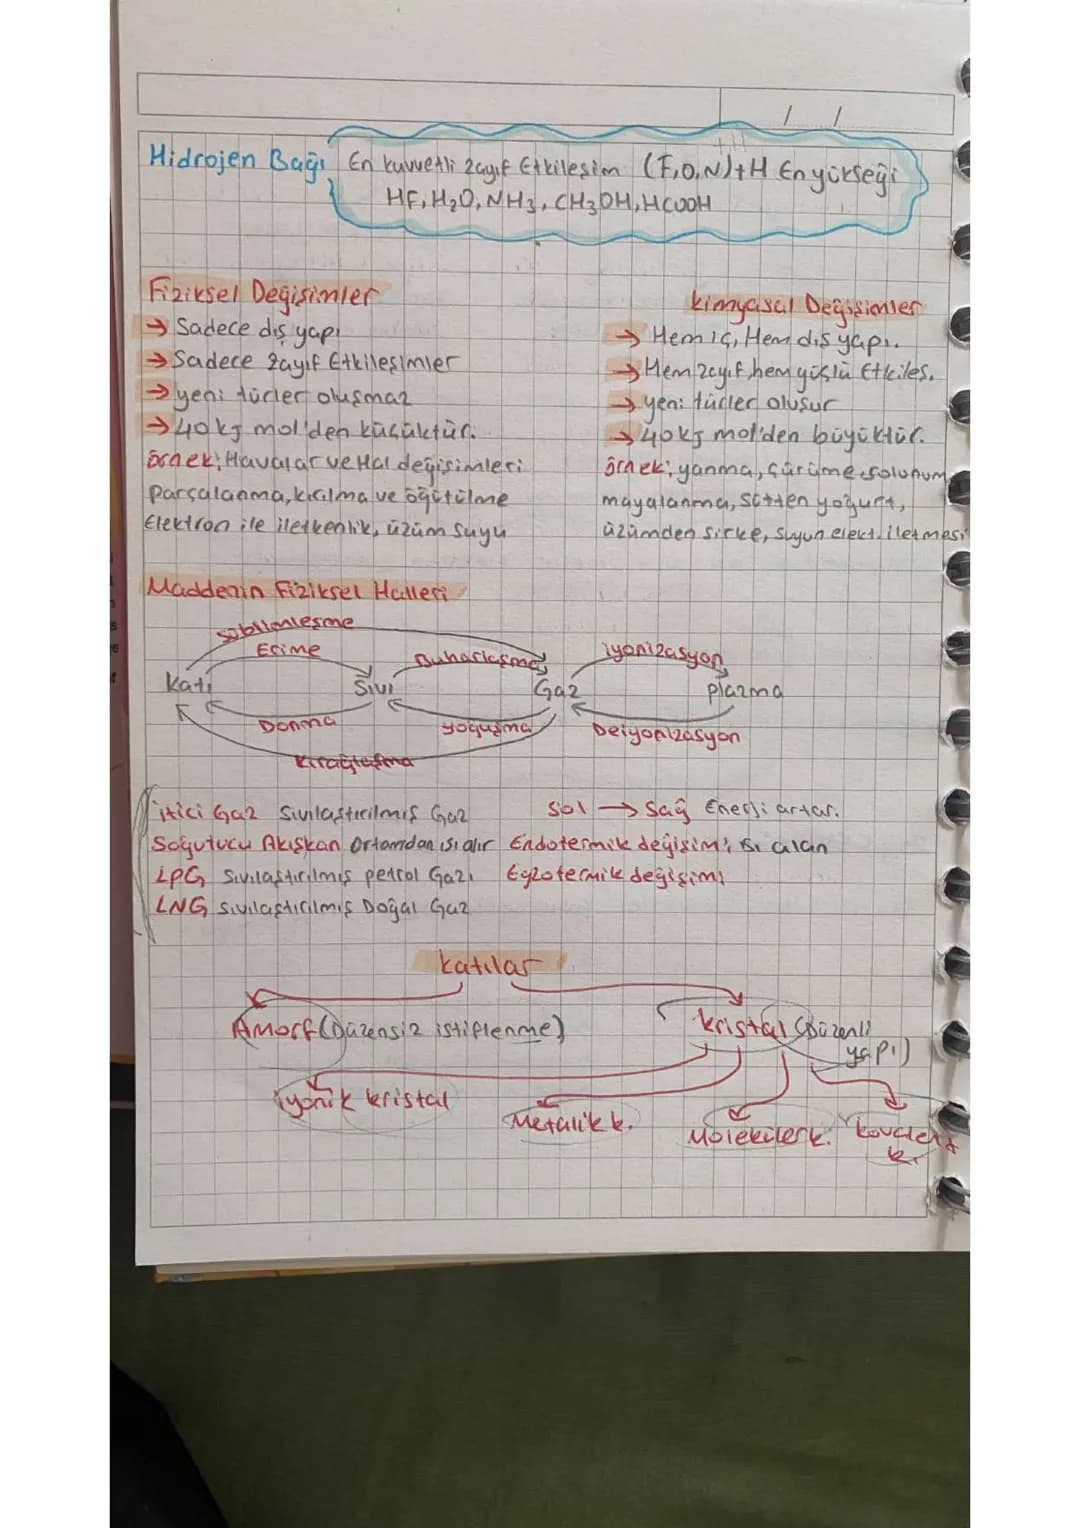 / /
Hidrojen Bağı En kuvvetli zayıf Etkileşim (F,O,N)+H En yükseği
HF, H₂O, NH₃, CH₃OH, HCOOH
Fiziksel Değişimler
→ Sadece dış yapı
→ Sadece zayıf Etkileşimler
→ yeni türler oluşmaz
→ 40kj mol'den küçüktür.
örnek; Havalar ve Hal değişimleri
parçalanma, kırılma ve öğütülme
Elektron ile iletkenlik, üzüm suyu
kimyasal Değişimler
→ Hem iç, Hem dış yapı.
→ Hem zayıf, hem güçlü Etkileş.
→ yeni türler oluşur
→ 40kj mol'den büyüktür.
örnek; yanma, çürüme, solunum
mayalanma, sütten yoğurt,
üzümden sirke, suyun elekt. iletmesi
Maddenin Fiziksel Halleri
Süblimleşme
Erime Buharlaşma iyonizasyon
Katı Sıvı Gaz plazma
Donma yoğuşma Deiyonizasyon
Kırağılaşma
itici Gaz Sıvılaştırılmış Gaz Sol → Sağ Enerji artar.
Soğutucu Akışkan Ortamdan ısı alır Endotermik değişim; ısı alan
LPG Sıvılaştırılmış petrol Gazı Egzotermik değişim;
LNG Sıvılaştırılmış Doğal Gaz
katılar
Amorf (Düzensiz istiflenme) kristal (Düzenli
yapı)
iyonik kristal Metalik k. Moleküler k. kovalent
k.